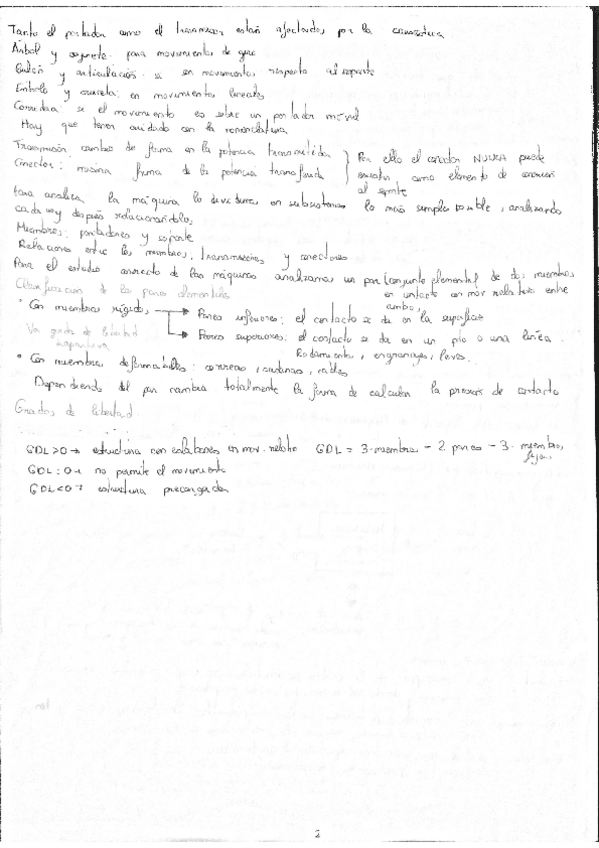 Tanto el portador como el transmisor están afectados por la
Árbol y soporte: para movimiento de giro
Bulón y articulación: si en movimiento respecto al soporte
Émbolo y cruceta: en movimientos lineales
Corredera: si el movimiento es sobre un portador móvil
Hay que tener cuidado con la nomenclatura
Transmisión cambio de forma en la potencia transmitida
Conector: misma forma de la potencia transferida
Por ello el conector NUNCA puede
como elemento de conexión
al soporte
Para analizar la máquina lo en subsistemas lo más simple posible, analizando
cada uno y después relacionándolos
Miembros: portadores y soporte
Relaciones entre los miembros: transmisiones y conectores
Para el estudio correcto de las máquinas analizamos un par (conjunto elemental) de dos miembros
en contacto en mov relativo entre
ambos
Clasificación de los pares elementales
• Con miembros rígidos → Pares inferiores: el contacto se da en la superficie
→ Pares superiores: el contacto se da en un pto o una línea.
Ver grados de libertad
Rodamientos, engranajes, levas.
• Con miembros deformables: correas, cadenas, cables
Dependiendo del par cambia totalmente la forma de calcular la presión de contacto
Grados de libertad
GDL>0 → estructura con eslabones en mov. relativo GDL = 3·miembros - 2 pares - 3· miembros
fijos
GDL=0 → no permite el movimiento
GDL<0 → estructura precargada
2